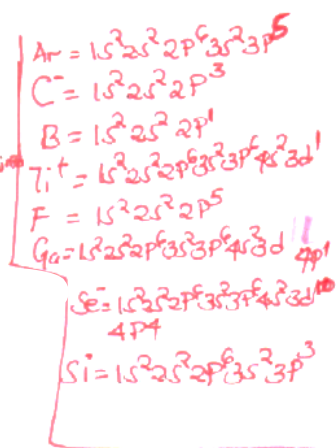 Ar = 1s² 2s² 2p⁶ 3s² 3p⁵
C⁻ = 1s² 2s² 2p³
B = 1s² 2s² 2p¹
Ti⁺ = 1s² 2s² 2p⁶ 3s² 3p⁶ 4s² 3d¹
F = 1s² 2s² 2p⁵
Ga = 1s² 2s² 2p⁶ 3s² 3p⁶ 4s² 3d 4p¹
Se⁻ = 1s² 2s² 2p⁶ 3s² 3p⁶ 4s² 3d¹⁰
4p4
Si = 1s² 2s² 2p⁶ 3s² 3p³